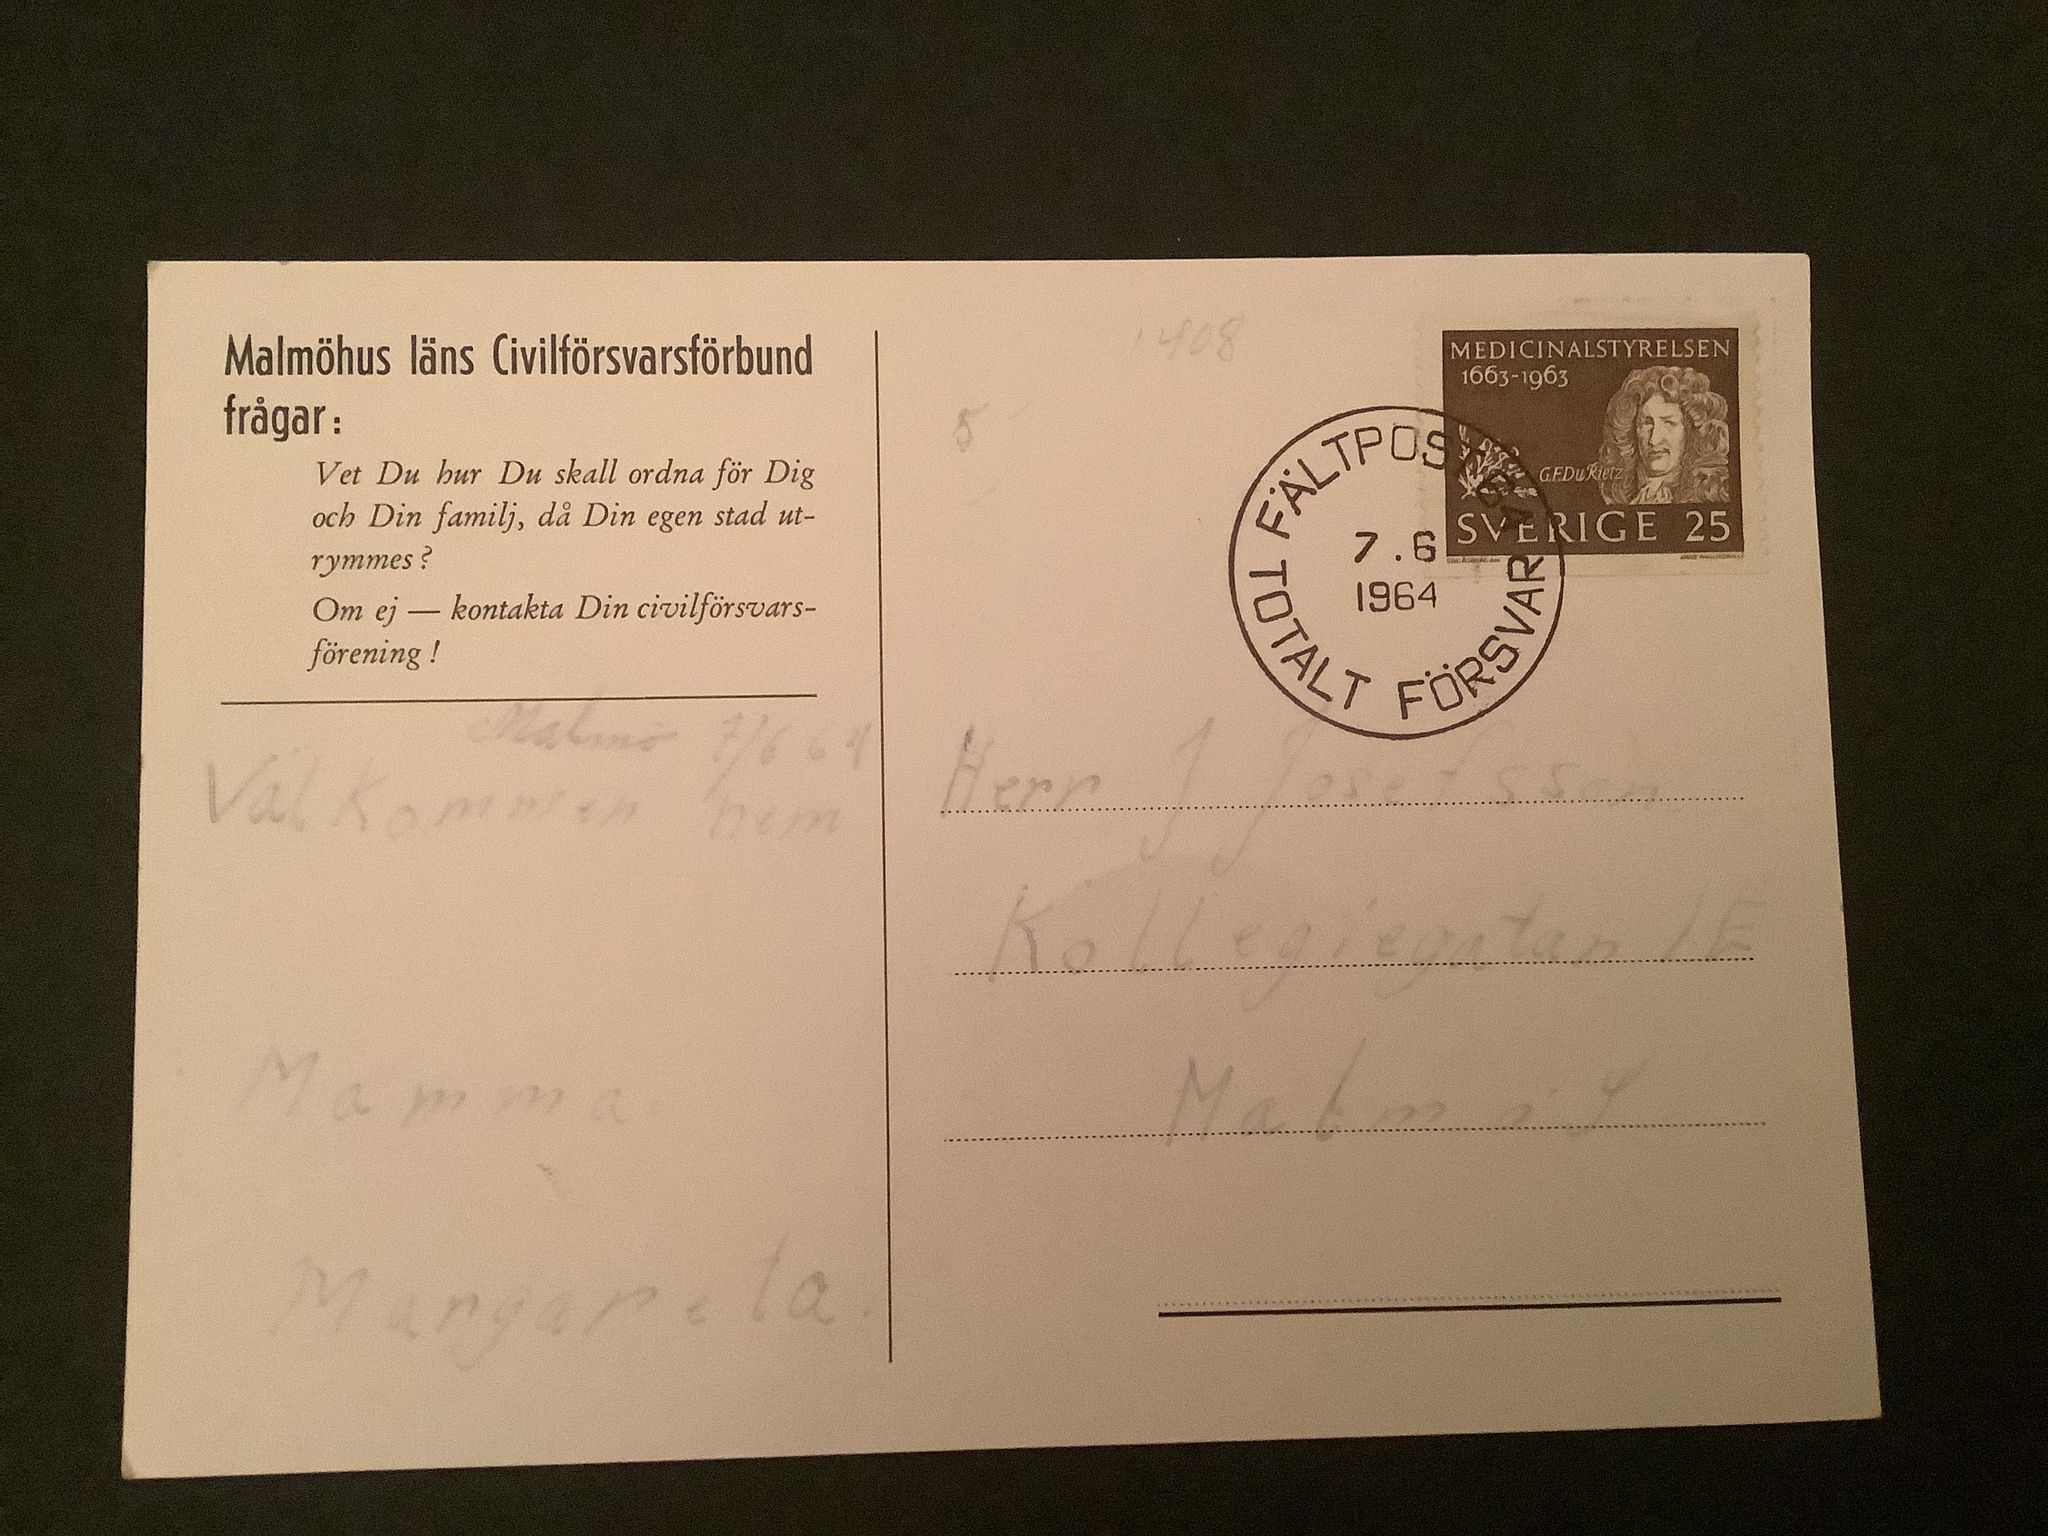 Malmöhus läns Civilförsvarsförbund
frågar:
Vet Du hur Du skall ordna för Dig
och Din familj, då Din egen stad ut-
rymmes?
Om ej — kontakta Din civilförsvars-
förening!
Malmö 7/6 64
Välkommen hem
Mamma
Margareta.
1408
5
MEDICINALSTYRELSEN
1663-1963
G.F.Du Rietz
SVERIGE 25
FÄLTPOST
7.6
1964
TOTALT FÖRSVAR
Herr J Josefsson
Kollegiegatan 1E
Malmö